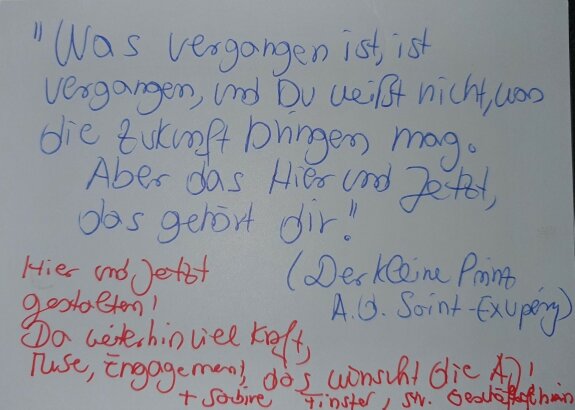 "Was vergangen ist, ist
vergangen, und Du weißt nicht, was
die Zukunft bringen mag.
Aber das Hier und Jetzt,
das gehört dir."
(Der kleine Prinz
A. d. Saint-Exupéry)
Hier und Jetzt
gestalten!
Da weiterhin viel Kraft,
Muse, Engagement, das wünscht die
+ Sabine Finster,